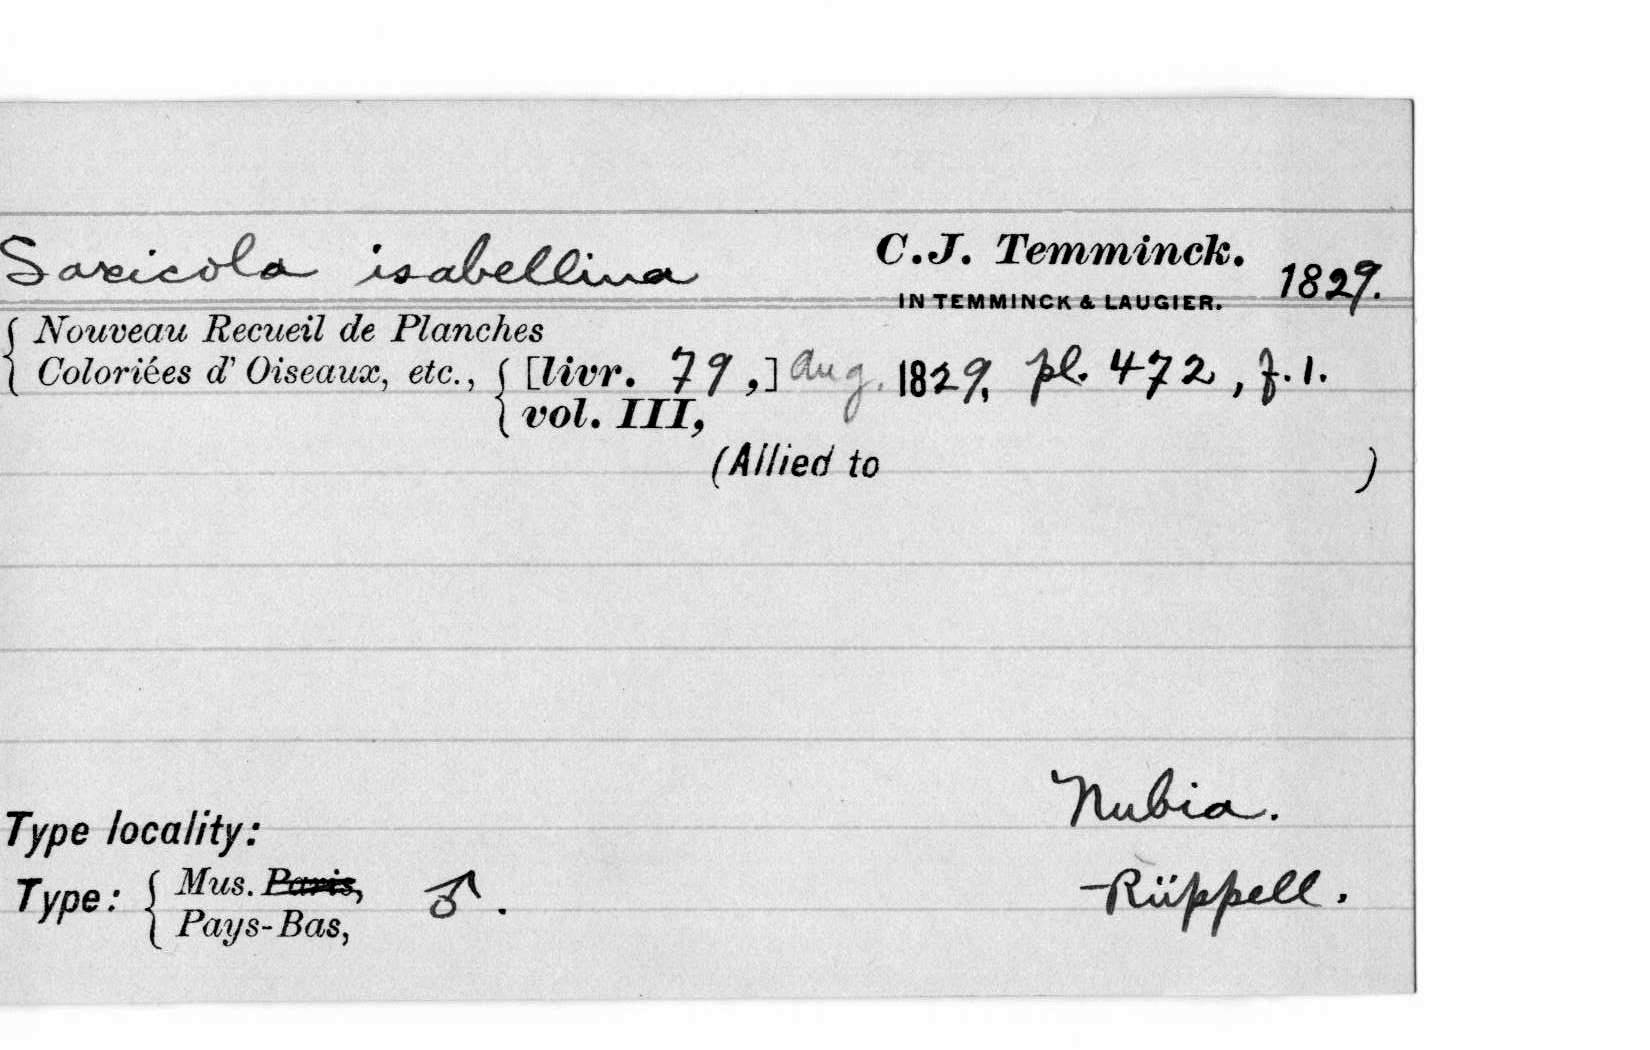 Saxicola isabellina C.J. Temminck. 1829.
IN TEMMINCK & LAUGIER.
Nouveau Recueil de Planches
Coloriées d' Oiseaux, etc., [livr. 79,] Aug. 1829, pl. 472, f.1.
vol. III,
(Allied to )
Nubia.
Type locality:
Type: Mus. Paris, ♂. Rüppell.
Pays-Bas,